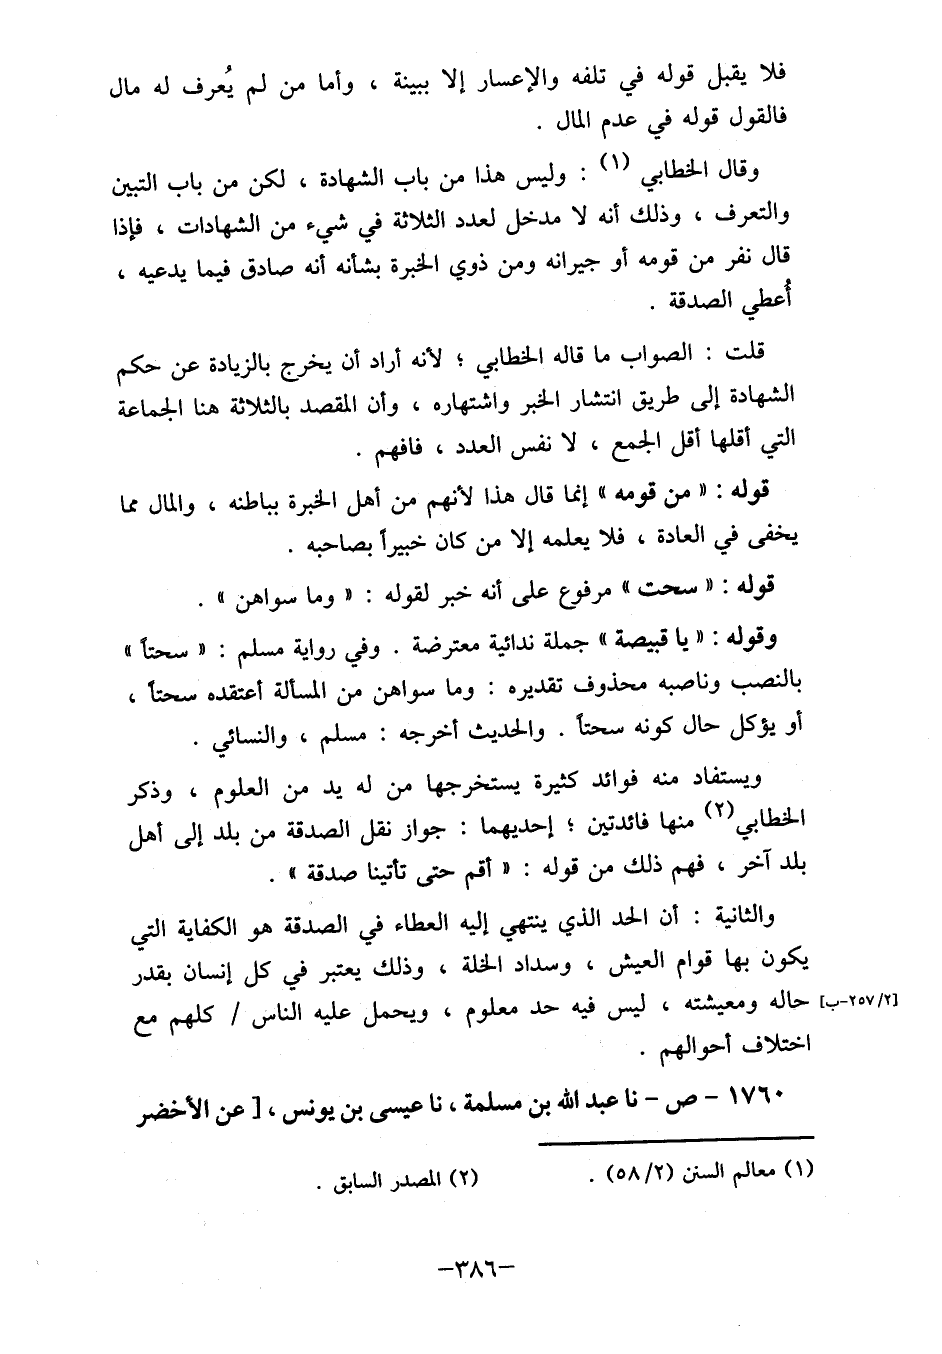 فلا يقبل قوله في تلفه والإعسار إلا ببينة ، وأما من لم يُعرف له مال
فالقول قوله في عدم المال .
وقال الخطابي (١) : وليس هذا من باب الشهادة ، لكن من باب التبين
والتعرف ، وذلك أنه لا مدخل لعدد الثلاثة في شيء من الشهادات ، فإذا
قال نفر من قومه أو جيرانه ومن ذوي الخبرة بشأنه أنه صادق فيما يدعيه ،
أُعطي الصدقة .
قلت : الصواب ما قاله الخطابي ؛ لأنه أراد أن يخرج بالزيادة عن حكم
الشهادة إلى طريق انتشار الخبر واشتهاره ، وأن المقصد بالثلاثة هنا الجماعة
التي أقلها أقل الجمع ، لا نفس العدد ، فافهم .
قوله : « من قومه » إنما قال هذا لأنهم من أهل الخبرة بباطنه ، والمال مما
يخفى في العادة ، فلا يعلمه إلا من كان خبيراً بصاحبه .
قوله : « سحت » مرفوع على أنه خبر لقوله : « وما سواهن » .
وقوله : « يا قبيصة » جملة ندائية معترضة . وفي رواية مسلم : « سحتاً »
بالنصب وناصبه محذوف تقديره : وما سواهن من المسألة أعتقده سحتاً ،
أو يؤكل حال كونه سحتاً . والحديث أخرجه : مسلم ، والنسائي .
ويستفاد منه فوائد كثيرة يستخرجها من له يد من العلوم ، وذكر
الخطابي(٢) منها فائدتين ؛ إحديهما : جواز نقل الصدقة من بلد إلى أهل
بلد آخر ، فهم ذلك من قوله : « أقم حتى تأتينا صدقة » .
والثانية : أن الحد الذي ينتهي إليه العطاء في الصدقة هو الكفاية التي
يكون بها قوام العيش ، وسداد الخلة ، وذلك يعتبر في كل إنسان بقدر
[٢/٢٥٧-ب] حاله ومعيشته ، ليس فيه حد معلوم ، ويحمل عليه الناس / كلهم مع
اختلاف أحوالهم .
١٧٦٠ - ص - نا عبد الله بن مسلمة ، نا عيسى بن يونس ، [ عن الأخضر
(١) معالم السنن (٥٨/٢) . (٢) المصدر السابق .
-٣٨٦-